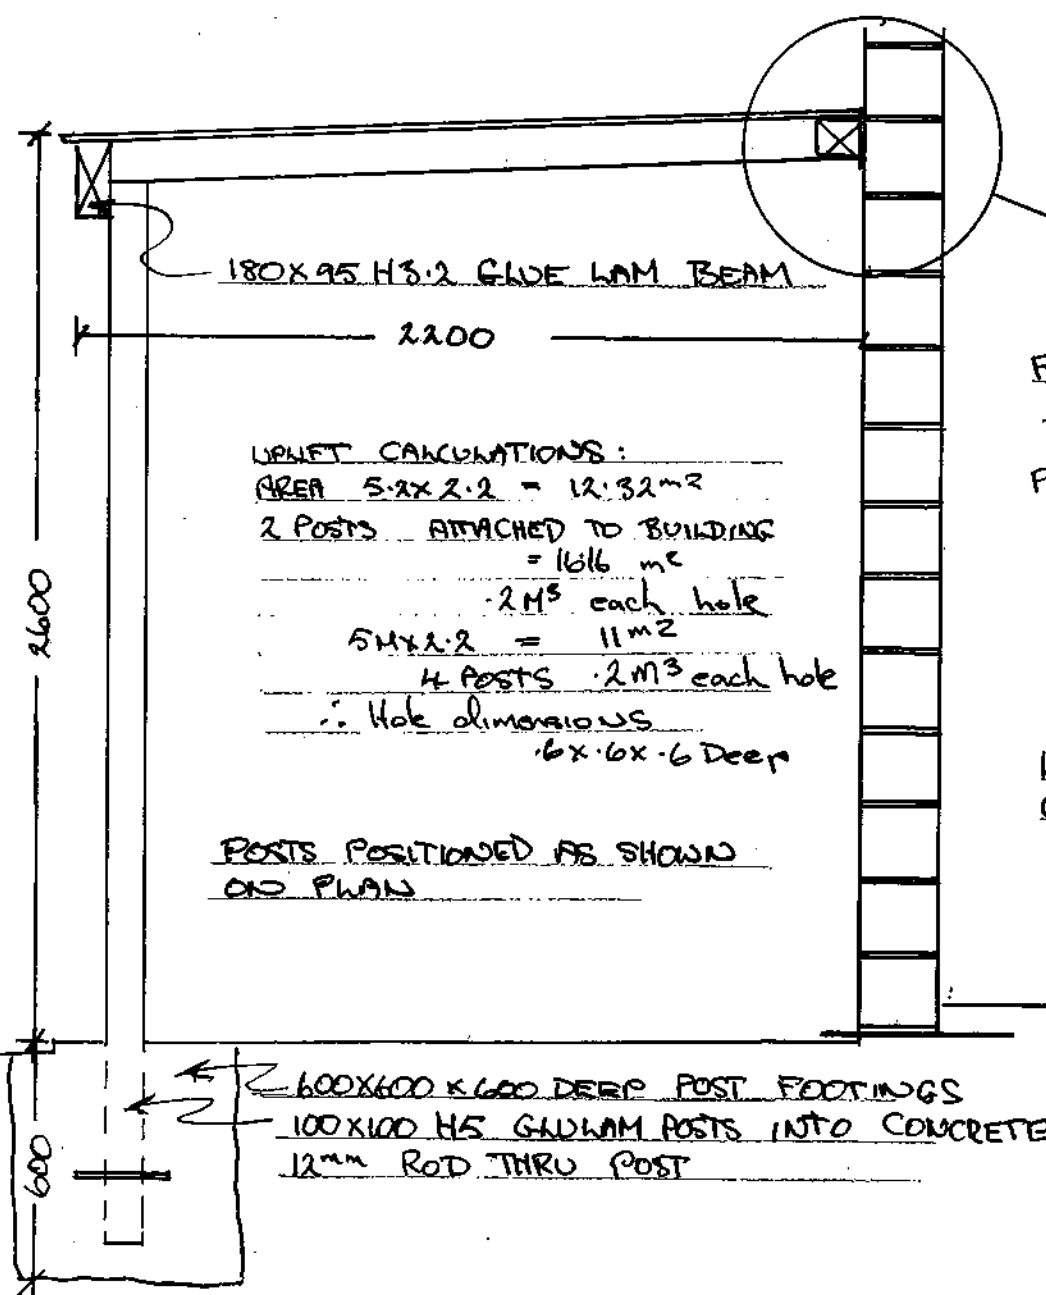 180X95 H3.2 GLUE LAM BEAM
2200
UPLIFT CALCULATIONS:
AREA 5.2X2.2 = 12.32m2
2 POSTS ATTACHED TO BUILDING
= 16.16 m2
.2M3 each hole
5MX2.2 = 11m2
4 POSTS .2M3 each hole
∴ Hole dimensions
.6x.6x.6 Deep
2600
POSTS POSITIONED AS SHOWN
ON PLAN
600X600X600 DEEP POST FOOTINGS
100X100 H5 GLULAM POSTS INTO CONCRETE
12mm ROD THRU POST
600